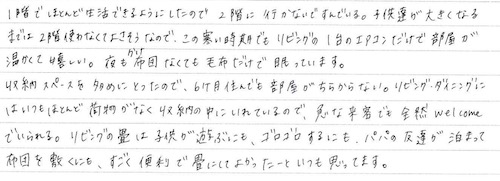 1階でほとんど生活できるようにしたので 2階に行かないですんでいる。子供達が大きくなる
までは2階使わなくてよさそうなので、この寒い時期でもリビングの1台のエアコンだけで部屋が
温かくて嬉しい。夜も掛け布団なくても毛布だけで眠っています。
収納スペースを多めにとったので、6ヶ月住んでも部屋がちらからない。リビング・ダイニングに
はいつもほとんど荷物がなく収納の中にいれているので、急な来客でも全然welcome
でいられる。リビングの畳は子供が遊ぶにも、ゴロゴロするにも、パパの友達が泊まって
布団を敷くにも、すごく便利で畳にしてよかったーといつも思ってます。